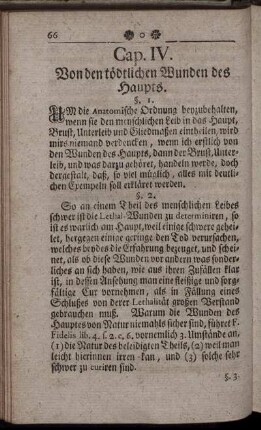 66
Cap. IV.
Von den tödtlichen Wunden des
Haupts.
§. 1.
UM die Anatomische Ordnung beyzubehalten,
wenn sie den menschlichen Leib in das Haupt,
Brust, Unterleib und Gliedmaßen eintheilen, wird
mirs niemand verdencken, wenn ich erstlich von
den Wunden des Haupts, dann der Brust, Unter-
leib, und was darzu gehöret, handeln werde, doch
dergestalt, daß, so viel müglich, alles mit deutli-
chen Exempeln soll erkläret werden.
§. 2.
So an einem Theil des menschlichen Leibes
schwer ist die Lethal-Wunden zu determiniren, so
ist es warlich am Haupt, weil einige schwere gehei-
let, hergegen einige geringe den Tod verursachen,
welches beydes die Erfahrung bezeuget, und schei-
net, als ob diese Wunden vor andern was sonder-
liches an sich haben, wie aus ihren Zufällen klar
ist, in dessen Ansehung man eine fleißige und sorg-
fältige Cur vornehmen, als in Fällung eines
Schlusses von derer Lethalität großen Verstand
gebrauchen muß. Warum die Wunden des
Hauptes von Natur niemahls sicher sind, führet F.
Fidelis lib. 4. s. 2. c. 6. vornemlich 3. Umstände an,
(1) die Natur des beleidigten Theils, (2) weil man
leicht hierinnen irren kan, und (3) solche sehr
schwer zu curiren sind.
§. 3.